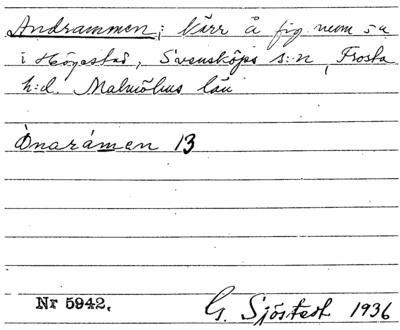 Andrammen; Kärr å fig num 5a
i Högestad, Svensköps s:n, Frosta
h:d. Malmöhus län
Ònarámen 13
Nr 5942.
G. Sjöstedt 1936